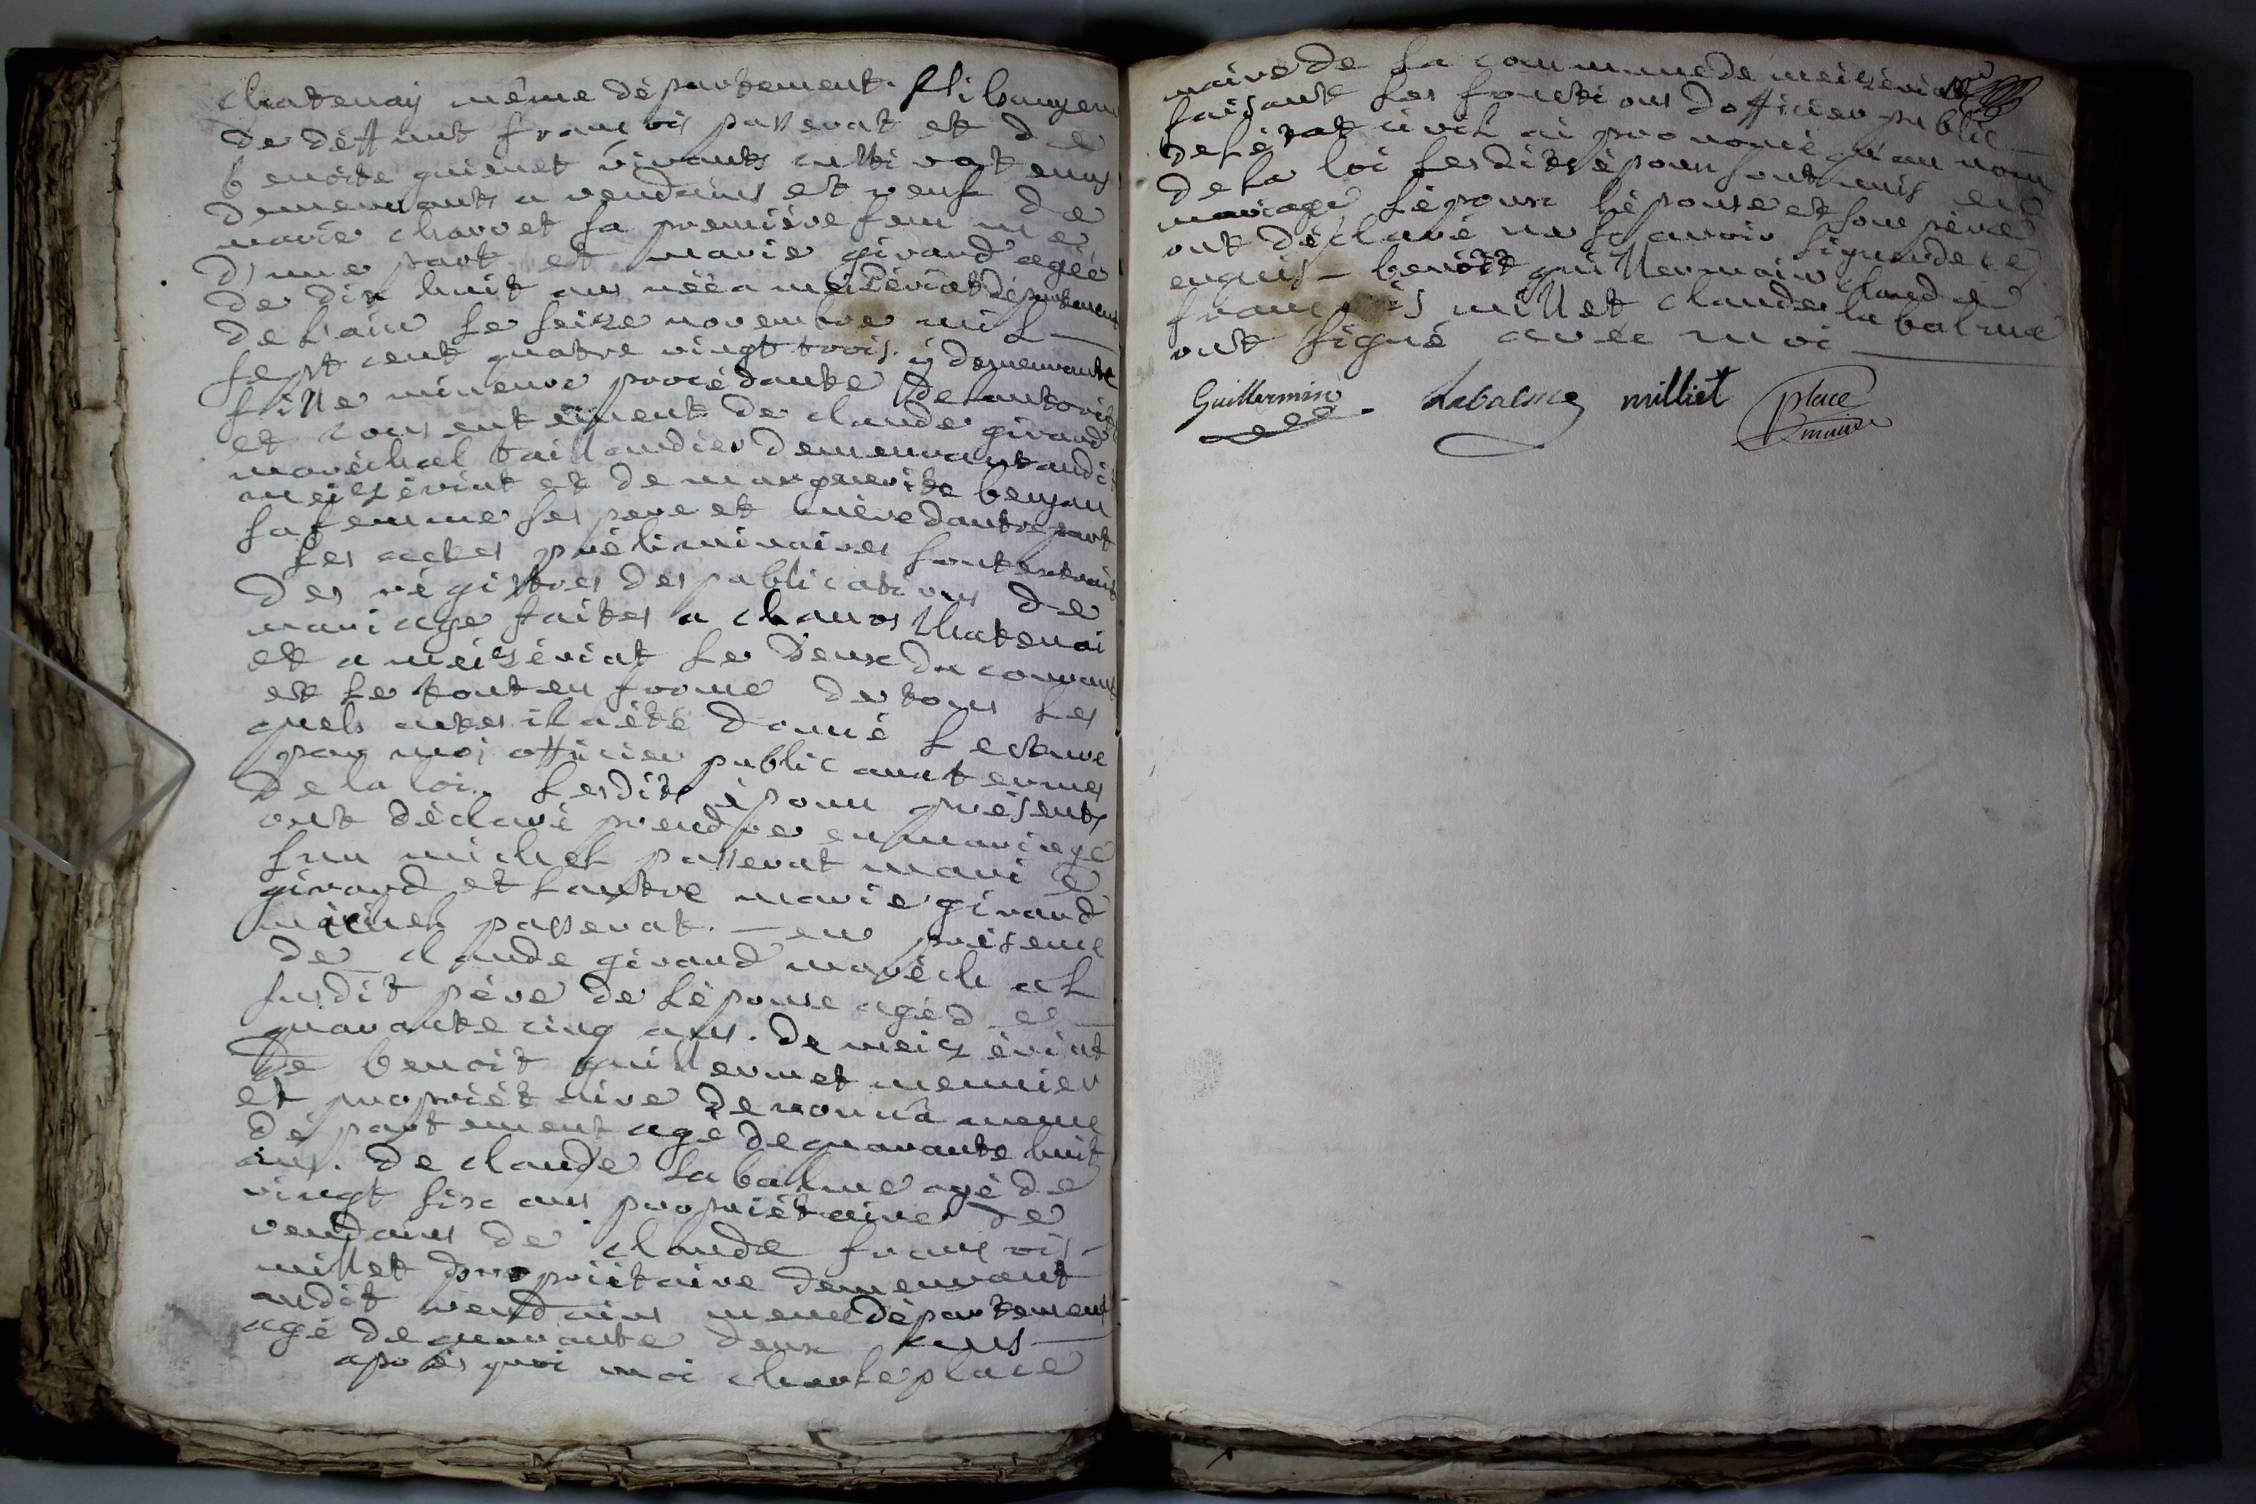 chatenay même département. fils majeur
de déffunt françois passerat et de
benoite guienet vivants cultivateurs
demeurants a vendains et veuf de
marie charvet sa première femme
d'une part et marie girand agée
de dix huit ans née a meizériat département
de lain le seize novembre mil
sept cent quatre vingt trois. y demeurante
fille mineure procédante de lautorité
et consentement de claude girand
maréchal taillandier demeurant audit
meizériat et de marguerite
sa femme ses pere et mère dautre part
Les actes préliminaires sont extraits
des régistres des publications de
mariage faites a chatenai
et a meizériat le deux du courant
et le tout en forme de tous les
quels actes il a été donné lecture
par moi officier public aux termes
de la loi. Lesdits époux présents
ont déclaré prendre en mariage
lun michel passerat marie
girand et lautre marie girand
michel passerat. — en présence
de claude girand maréchal
susdit père de lépouse agé de
quarante cinq ans. de meizériat
De benoit guillermet meunier
et propriétaire de même
département agé de quarante huit
ans. de claude labalme agé de
vingt six ans propriétaire de
vendains de claude françois
millet propriétaire demeurant
audit vendains meme département
agé de quarante deux ans
après quoi moi charle place
maire de la commune de meizériat
faisant les fonctions dofficier public
de létat civil ai prononcé qu'au nom
de la loi lesdits époux sont unis en
mariage lépoux lépouse et son père
ont déclaré ne sçavoir signer de ce
enquis — benoît guillermain claude
françois millet claude labalme
ont signé avec moi
Guillermin labalme milliet place
maire